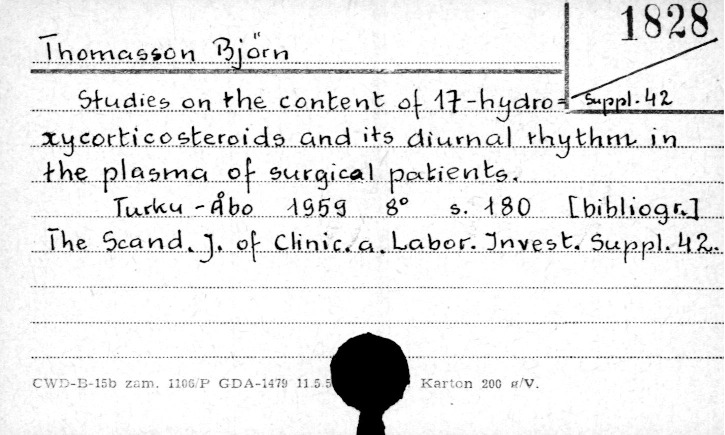 1828
Thomasson Björn
Studies on the content of 17-hydro= Suppl. 42
xycorticosteroids and its diurnal rhythm in
the plasma of surgical patients.
Turku - Åbo 1959 8° s. 180 [bibliogr.]
The Scand. J. of Clinic. a. Labor. Invest. Suppl. 42.
CWD-B-15b zam. 1106/P GDA-1479 11.5.5 Karton 200 g/V.